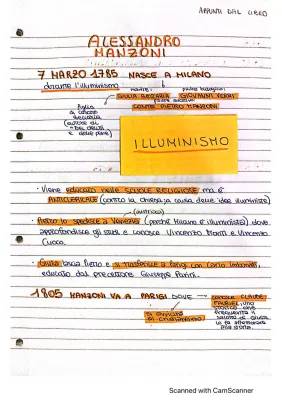 APPUNTI DAL LIBRO
ALESSANDRO
MANZONI
7 MARZO 1785 NASCE A MILANO
durante l'illuminismo
madre:
padre biologico:
GIULIA BECCARIA
GIOVANNI VERRI
figlia
di Cesare
Beccaria
(autore di
"Dei delitti
e delle pene")
CONTE PIETRO MANZONI
ILLUMINISMO
• Viene educato nelle SCUOLE RELIGIOSE ma è
ANTICLERICALE (contro la Chiesa, a causa delle idee illuministe)
(austriaco)
• Pietro lo spedisce a Venezia (perché Milano è illuminista) dove
approfondisce gli studi e conosce Vincenzo Monti e Vincenzo
Cuoco.
• Giulia lascia Pietro e si trasferisce a Parigi con Carlo Imbonati,
educato dal precettore Giuseppe Parini.
1805 MANZONI VA A PARIGI DOVE
conosce CLAUDE
FAURIEL, uno
storico che
frequenta il
salotto di Giulia
si avvicina
al cristianesimo
Scanned with CamScanner